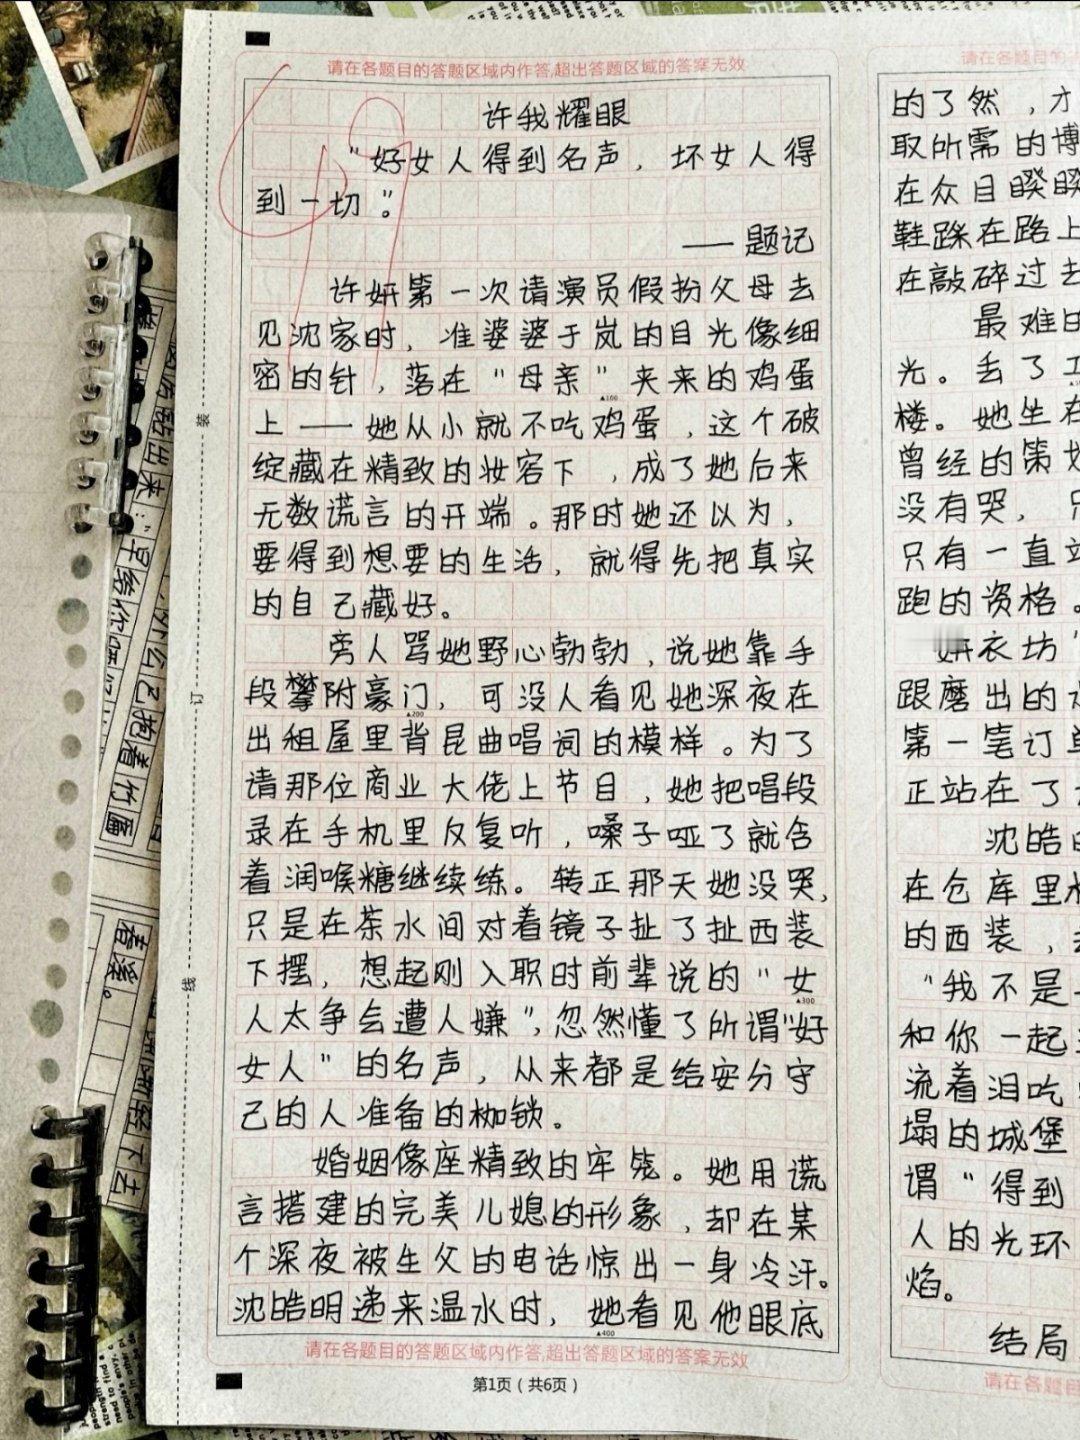 请在各题目的答题区域内作答,超出答题区域的答案无效
许我耀眼
"好女人得到名声，坏女人得
到一切"。
——题记
许妍第一次请演员假扮父母去
见沈家时，准婆婆于岚的目光像细
密的针，落在"母亲"夹来的鸡蛋
上——她从小就不吃鸡蛋，这个破
绽藏在精致的妆容下，成了她后来
无数谎言的开端。那时她还以为，
要得到想要的生活，就得先把真实
的自己藏好。
旁人骂她野心勃勃，说她靠手
段攀附豪门，可没人看见她深夜在
出租屋里背昆曲唱词的模样。为了
请那位商业大佬上节目，她把唱段
录在手机里反复听，嗓子哑了就含
着润喉糖继续练。转正那天她没哭，
只是在茶水间对着镜子扯了扯西装
下摆，想起刚入职时前辈说的"女
人太争会遭人嫌"，忽然懂了所谓"好
女人"的名声，从来都是给安分守
己的人准备的枷锁。
婚姻像座精致的牢笼。她用谎
言搭建的完美儿媳的形象，却在某
个深夜被生父的电话惊出一身冷汗。
沈皓明递来温水时，她看见他眼底
▲100
▲200
▲300
▲400
请在各题目的答题区域内作答,超出答题区域的答案无效
第1页（共6页）
装
订
线
请在各题目的
的了然，才
取所需的博
在众目睽睽
鞋踩在路上
在敲碎过去
最难的
光。丢了工
楼。她坐在
曾经的策划
没有哭，只
只有一直站
跑的资格。
妍衣坊"
跟磨出的
第一笔订单
正站在了
沈皓的
在仓库里
的西装，
"我不是
和你一起
流着泪吃
塌的城堡
谓"得到
人的光环
焰。
结局
请在各题目
出来："早给你
么乙抱着竹匾
春溪。
轻下去